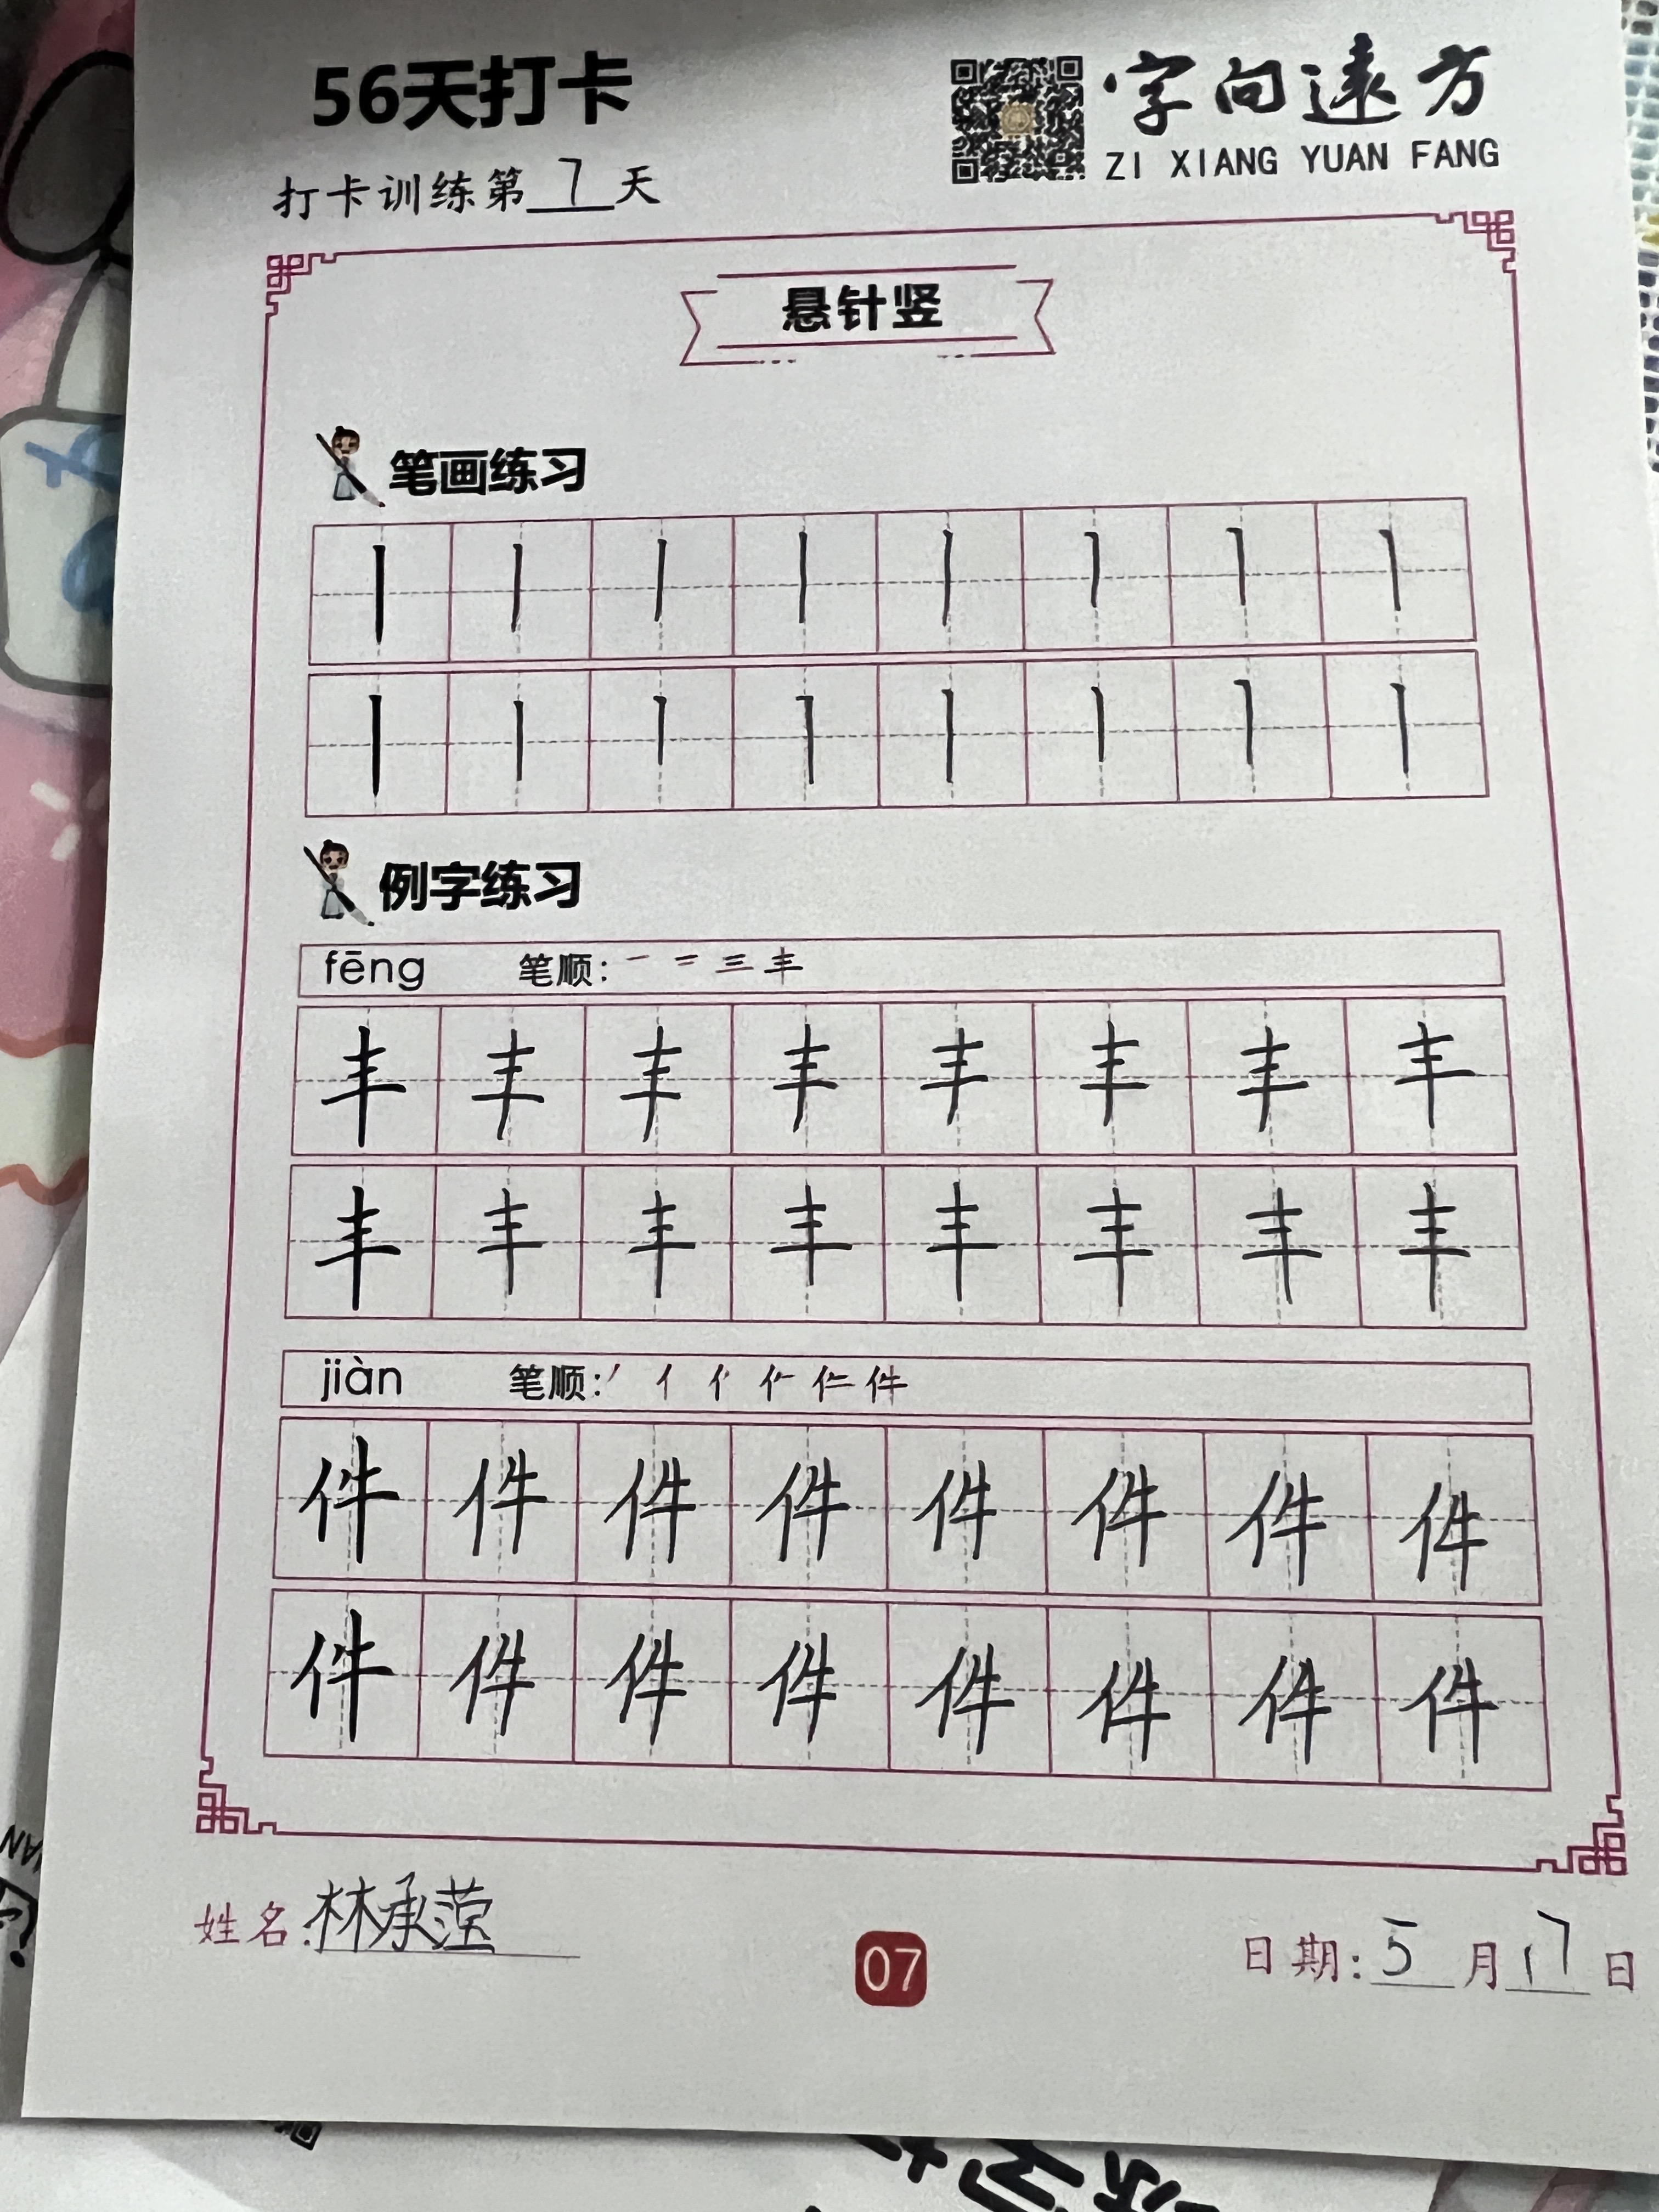 56天打卡
字向遠方
ZI XIANG YUAN FANG
打卡训练第7天
悬针竖
笔画练习
丨丨丨丨丨丨丨丨
丨丨丨丨丨丨丨丨
例字练习
fēng 笔顺：一 二 三 丰
丰丰丰丰丰丰丰丰
丰丰丰丰丰丰丰丰
jiàn 笔顺：丿 亻 件
件件件件件件件件
件件件件件件件件
姓名：林承莹
07
日期：5月17日